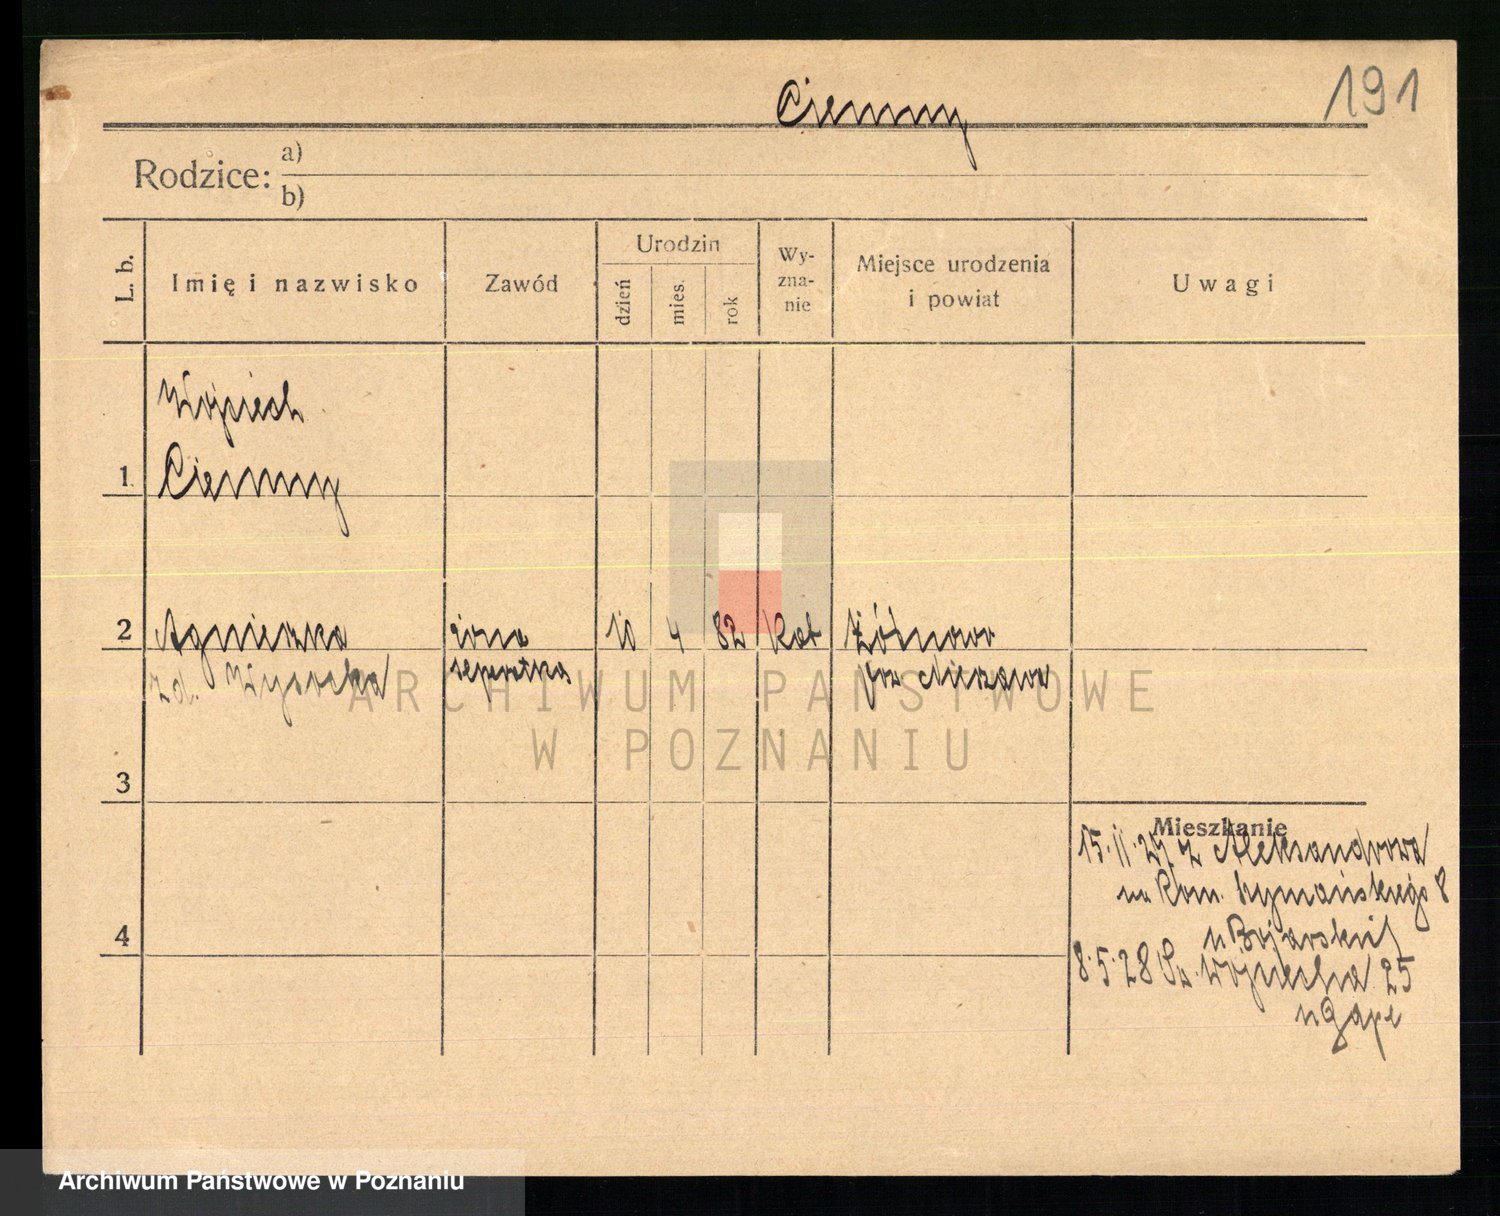 Ciemny
191
Rodzice:
a)
b)
L. b.
Imię i nazwisko
Zawód
Urodzin
dzień
mies.
rok
Wy-
zna-
nie
Miejsce urodzenia
i powiat
Uwagi
Wojciech
1. Ciemny
2 Agnieszka żona 10 4 82 Kat
zd. separatka
pow. Nieszawa
3
4
Mieszkanie
15.11.27 z Aleksandrowa
na Kom. Szymańskiego 8
u Bojarskiej
8.5.28 Św. Wojciecha 25
u Gape
ARCHIWUM PAŃSTWOWE
W POZNANIU
Archiwum Państwowe w Poznaniu